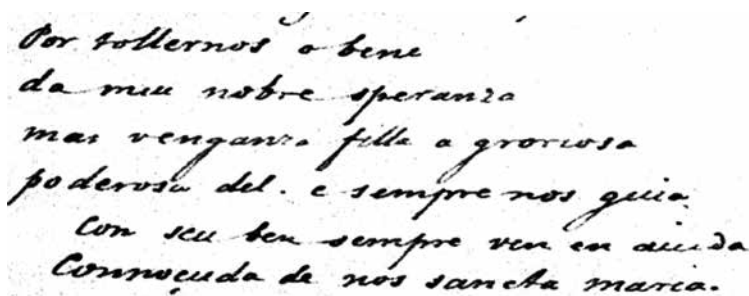 Por tollernos o bene
da meu nobre speranza
mas venganza filla a groriosa
poderosa del. e sempre nos guia
Con seu ben sempre ven en aiuda
Connoçuda de nos sancta maria.